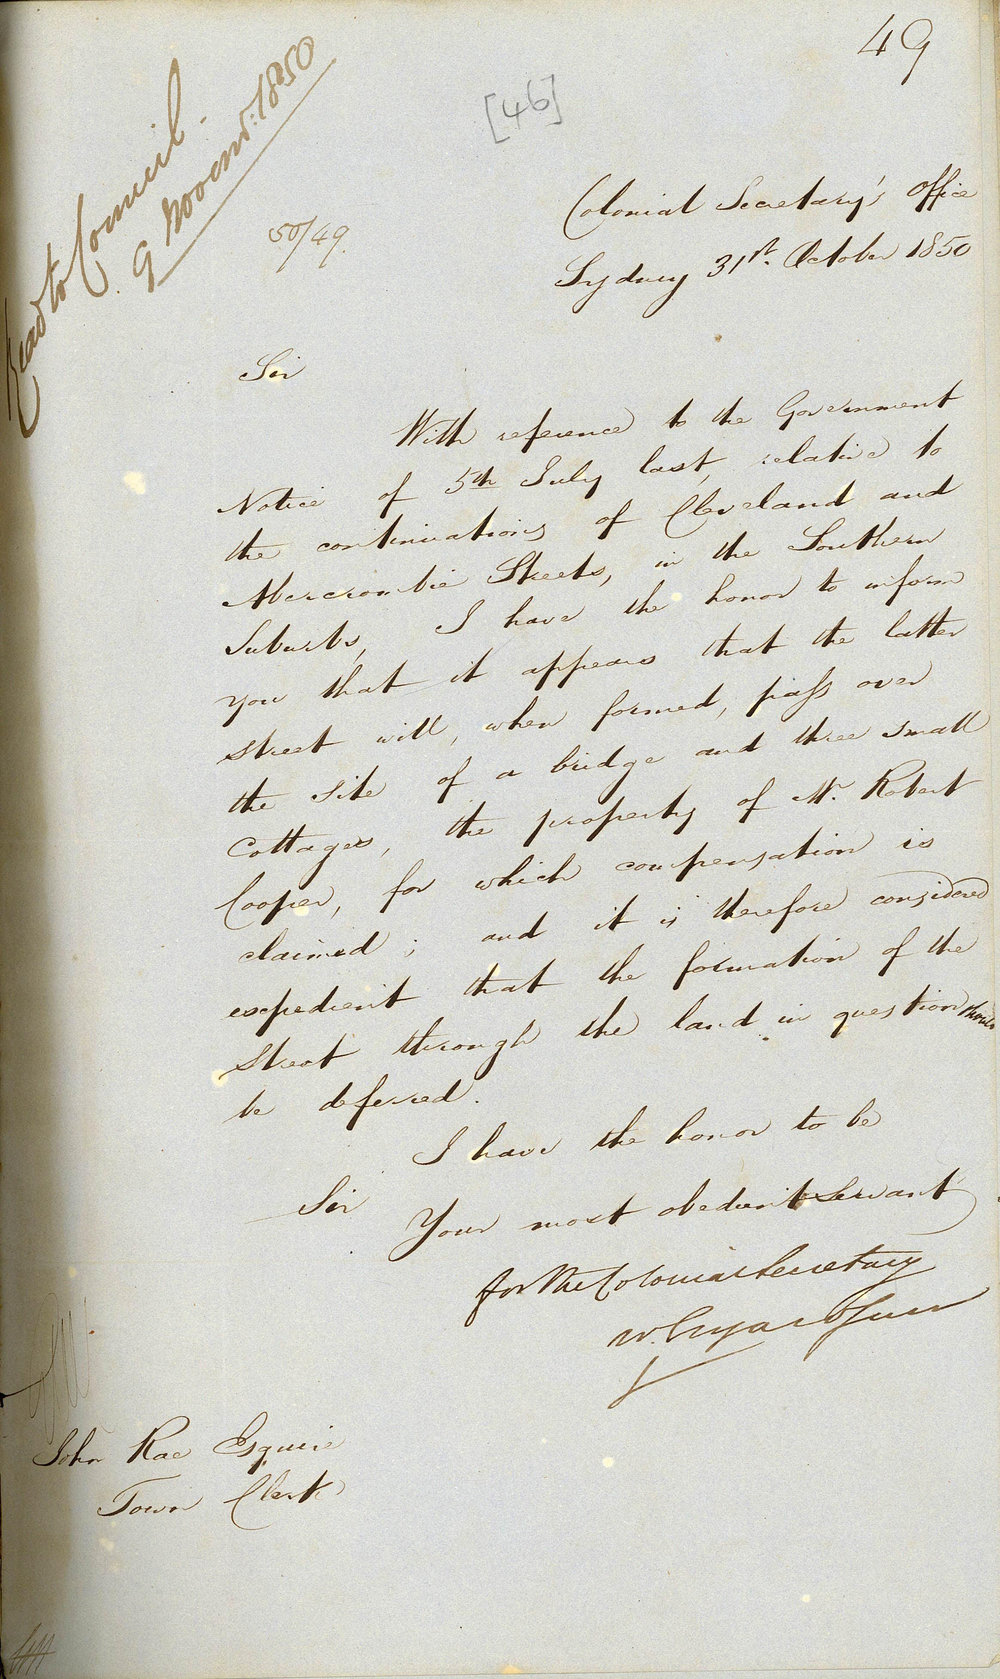 49
[46]
Read to Council.
9 Novem:r 1850
50/49.
Colonial Secretary's Office
Sydney 31st. October 1850
Sir
With reference to the Government
Notice of 5th July last, relative to
the continuations of Cleveland and
Abercrombie Streets, in the Southern
Suburbs, I have the honor to inform
you that it appears that the latter
street will, when formed, pass over
the site of a bridge and three small
Cottages, the property of Mr. Robert
Cooper, for which compensation is
claimed; and it is therefore considered
expedient that the formation of the
Street through the land in question should
be deferred.
I have the honor to be
Sir
Your most obedient Servant
for the Colonial Secretary
W.
John Rae Esquire
Town Clerk